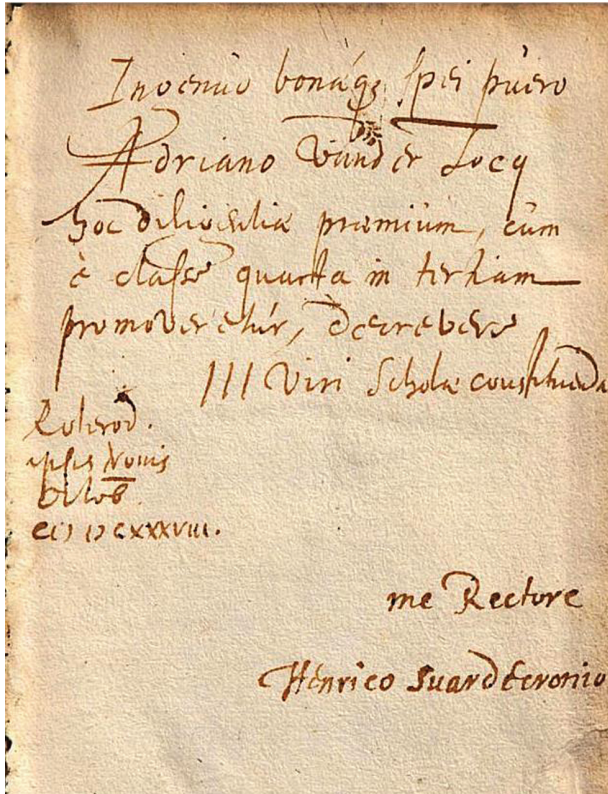 Ingenuo bonæq; spei puero
Adriano vander Locq
hoc diligentiæ præmium, cùm
è classe quarta in tertiam
promoveretur, decrevere
III Viri Scholæ constituendæ
Roterod.
ipsis Nonis
Octob.
CIↃ IↃ CXXXVIII.
me Rectore
Henrico Suardecronio